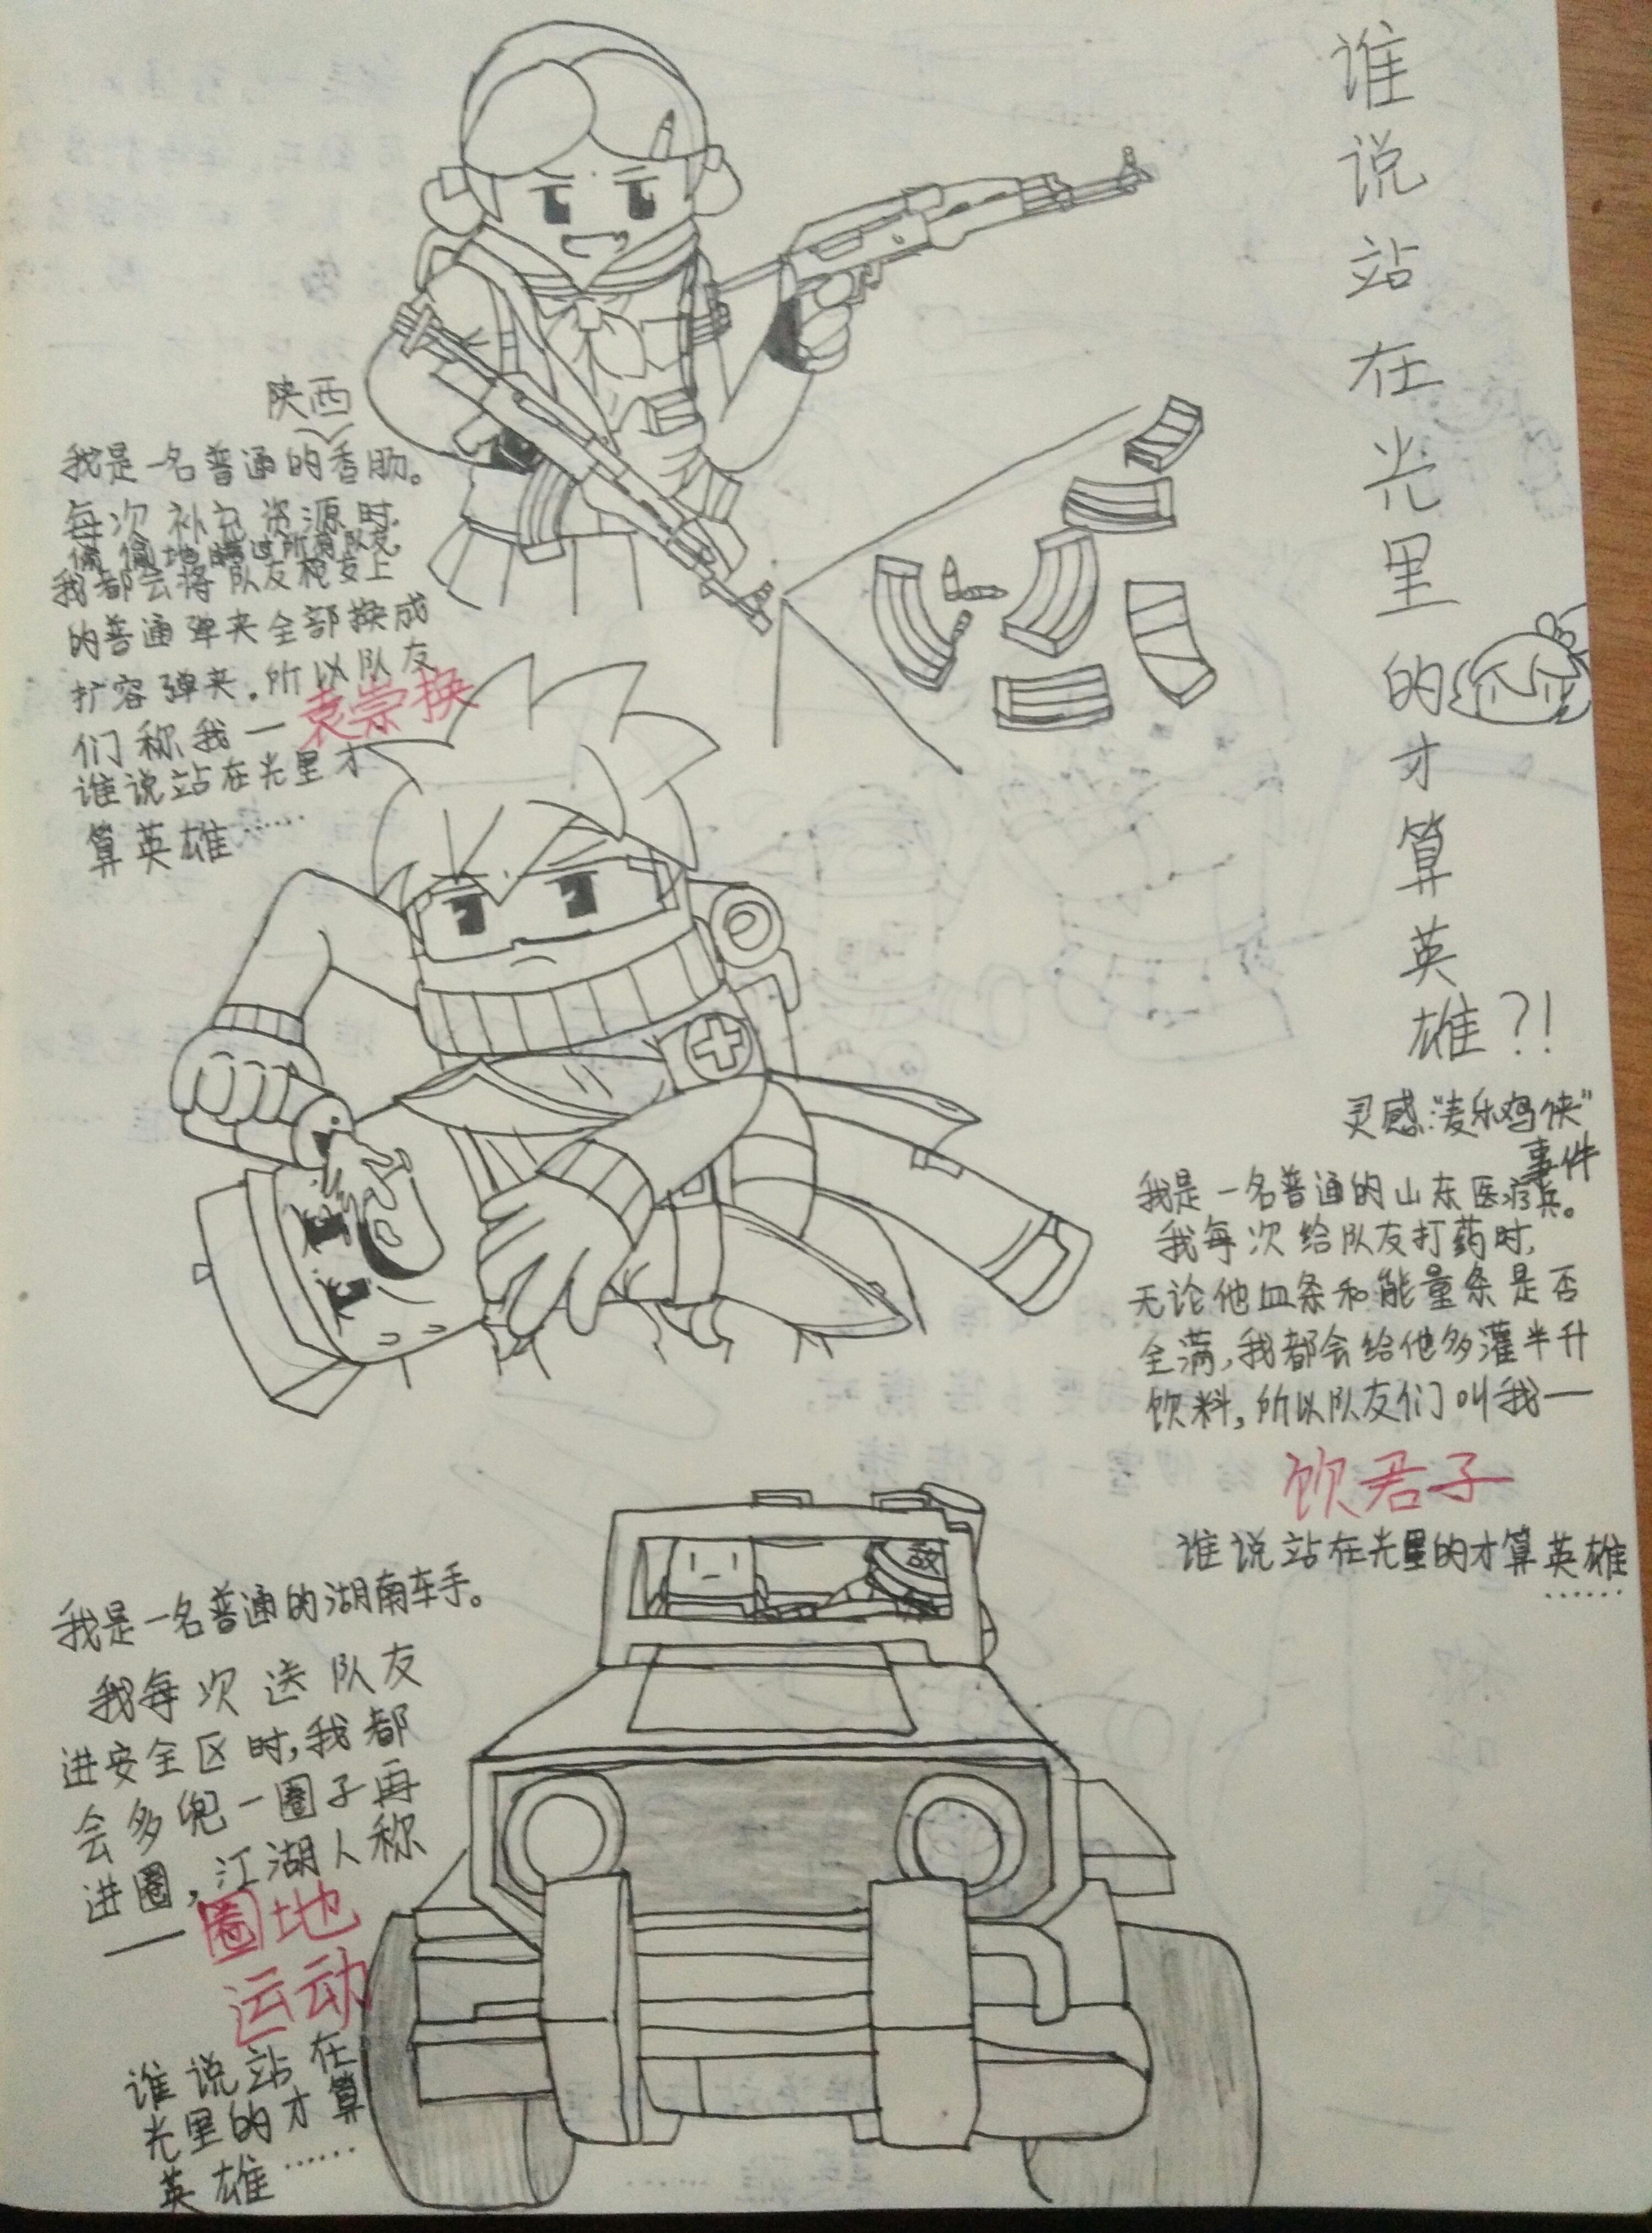 谁说站在光里的才算英雄?!
灵感:"麦乐鸡侠"
事件
陕西
我是一名普通的香肠。
每次补充资源时,
偷偷地瞒过所有队友,
我都会将队友枪支上
的普通弹夹全部换成
扩容弹夹。所以队友
们称我一袁崇换
谁说站在光里才
算英雄……
我是一名普通的山东医疗兵。
我每次给队友打药时,
无论他血条和能量条是否
全满,我都会给他多灌半升
饮料,所以队友们叫我一
饮君子
谁说站在光里的才算英雄
……
我是一名普通的湖南车手。
我每次送队友
进安全区时,我都
会多兜一圈子再
进圈,江湖人称
一圈地
运动
谁说站在
光里的才算
英雄……